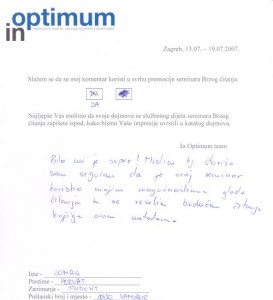 in optimum
Zagreb, 13.07. – 19.07.2007.
Slažem se da se moj komentar koristi u svrhu promocije seminara Brzog čitanja.
DA
Najljepše Vas molimo da svoje dojmove sa službenog dijela seminara Brzog
čitanja zapišete ispod, kako bismo Vaše impresije uvrstili u katalog dojmova.
In Optimum team
Bilo mi je super! Mislim tj.
sam siguran da je ovaj seminar
koristio mojim mogućnostima glede
čitanja te se veselim budućem čitanju
knjiga ovom metodom.
Ime -
Prezime - HORVAT
Zanimanje - STUDENT
Poštanski broj i mjesto -